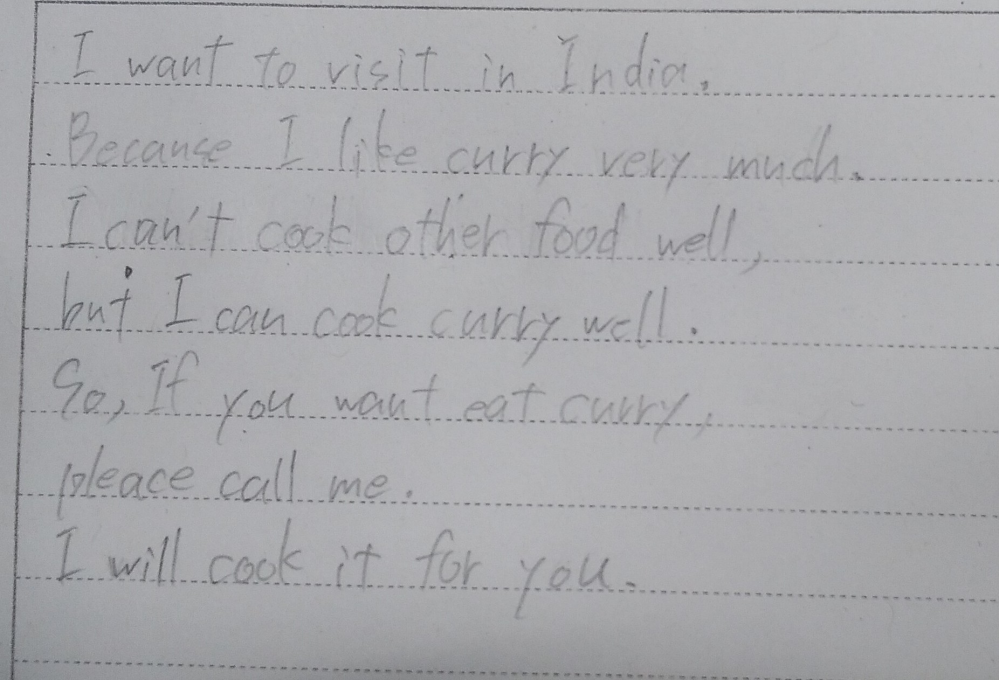 I want to visit in India.
Because I like curry very much.
I can't cook other food well,
but I can cook curry well.
So, If you want eat curry,
pleace call me.
I will cook it for you.